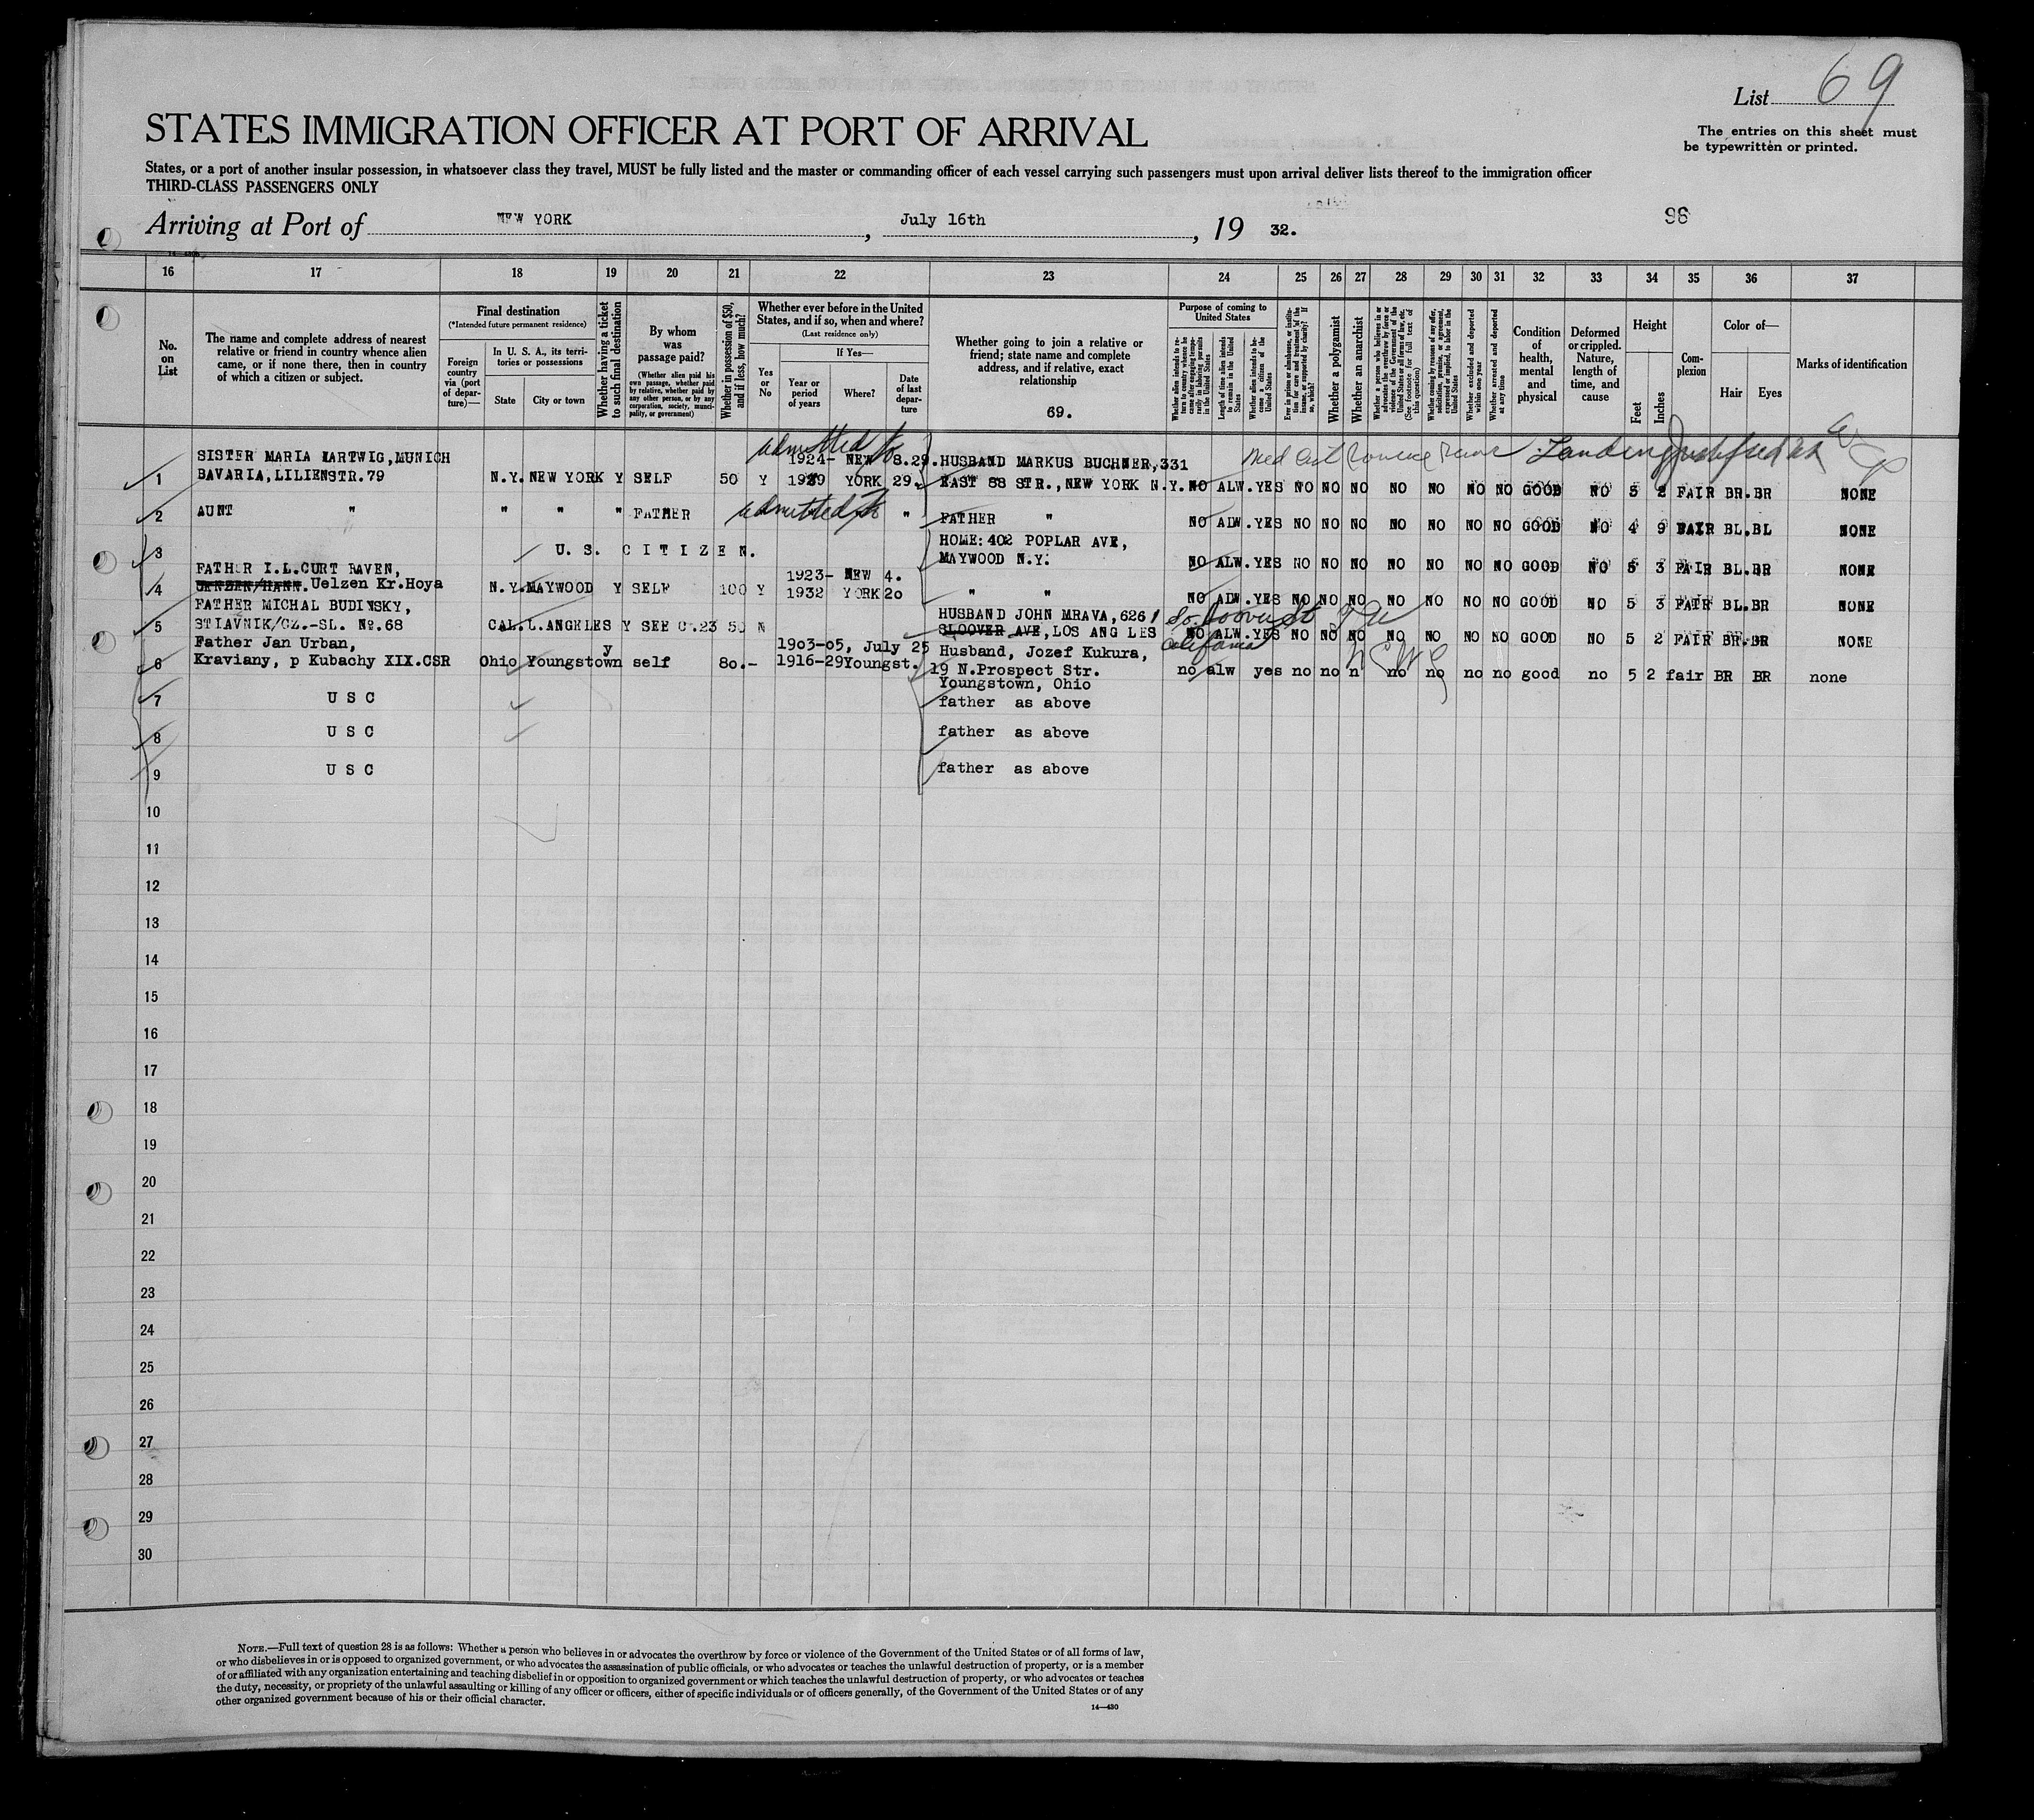 List 69
STATES IMMIGRATION OFFICER AT PORT OF ARRIVAL
The entries on this sheet must
be typewritten or printed.
States, or a port of another insular possession, in whatsoever class they travel, MUST be fully listed and the master or commanding officer of each vessel carrying such passengers must upon arrival deliver lists thereof to the immigration officer
THIRD-CLASS PASSENGERS ONLY
Arriving at Port of NEW YORK, July 16th, 19 32.
98
16 17 18 19 20 21 22 23 24 25 26 27 28 29 30 31 32 33 34 35 36 37
No. on List
The name and complete address of nearest
relative or friend in country whence alien
came, or if none there, then in country
of which a citizen or subject.
Final destination
(*Intended future permanent residence)
Foreign country via (port of departure)—
In U. S. A., its territories or possessions
State City or town
Whether having a ticket to such final destination
By whom was passage paid?
(Whether alien paid his own passage, whether paid by relative, whether paid by any other person, or by any corporation, society, municipality, or government)
Whether in possession of $50, and if less, how much?
Whether ever before in the United States, and if so, when and where?
(Last residence only)
Yes or No
If Yes—
Year or period of years Where? Date of last departure
Whether going to join a relative or
friend; state name and complete
address, and if relative, exact
relationship
69.
Purpose of coming to United States
Whether alien intends to return to country whence he came after engaging temporarily in laboring pursuits in the United States
Length of time alien intends to remain in the United States
Whether alien intends to become a citizen of the United States
Ever in prison or almshouse, or institution for care and treatment of the insane, or supported by charity? If so, which?
Whether a polygamist
Whether an anarchist
Whether a person who believes in or advocates the overthrow by force or violence of the Government of the United States or all forms of law, etc. (See footnote for full text of this question)
Whether coming by reasons of any offer, solicitation, promise, or agreement, expressed or implied, to labor in the United States
Whether excluded and deported within one year
Whether arrested and deported at any time
Condition of health, mental and physical
Deformed or crippled. Nature, length of time, and cause
Height
Feet Inches
Complexion
Color of—
Hair Eyes
Marks of identification
admitted
Landing
SISTER MARIA HARTWIG, MUNICH 1924- NEW 8.29. HUSBAND MARKUS BUCHNER, 331
1 BAVARIA, LILIENSTR. 79 N.Y. NEW YORK Y SELF 50 Y 1929 YORK 29. EAST 88 STR., NEW YORK N.Y. NO ALW. YES NO NO NO NO NO NO NO GOOD NO 5 2 FAIR BR. BR NONE
admitted
2 AUNT " " " " FATHER " FATHER " NO ALW. YES NO NO NO NO NO NO NO GOOD NO 4 9 FAIR BL. BL NONE
HOME: 402 POPLAR AVE,
3 U. S. CITIZEN. MAYWOOD N.Y. NO ALW. YES NO NO NO NO NO NO NO GOOD NO 5 3 FAIR BL. BR NONE
FATHER I.L. CURT RAVEN, 1923- NEW 4.
4 Uelzen Kr. Hoya N.Y. MAYWOOD Y SELF 100 Y 1932 YORK 20 " " NO ALW. YES NO NO NO NO NO NO NO GOOD NO 5 3 FAIR BL. BR NONE
FATHER MICHAL BUDINSKY, HUSBAND JOHN MRAVA, 6261 So. Hoover St
5 STIAVNIK/CZ.-SL. No. 68 CAL. L. ANGELES Y SEE C.23 50 N SLOOVER AVE, LOS ANG LES California NO ALW. YES NO NO NO NO NO NO NO GOOD NO 5 2 FAIR BR. BR NONE
Father Jan Urban, y 1903-05, July 25 Husband, Jozef Kukura,
6 Kraviany, p Kubachy XIX. CSR Ohio Youngstown self 80.- 1916-29 Youngst. 19 N. Prospect Str. no alw yes no no n no no no no good no 5 2 fair BR BR none
Youngstown, Ohio
7 U S C father as above
8 U S C father as above
9 U S C father as above
10
11
12
13
14
15
16
17
18
19
20
21
22
23
24
25
26
27
28
29
30
NOTE.—Full text of question 28 is as follows: Whether a person who believes in or advocates the overthrow by force or violence of the Government of the United States or of all forms of law,
or who disbelieves in or is opposed to organized government, or who advocates the assassination of public officials, or who advocates or teaches the unlawful destruction of property, or is a member
of or affiliated with any organization entertaining and teaching disbelief in or opposition to organized government or which teaches the unlawful destruction of property, or who advocates or teaches
the duty, necessity, or propriety of the unlawful assaulting or killing of any officer or officers, either of specific individuals or of officers generally, of the Government of the United States or of any
other organized government because of his or their official character.
14—430